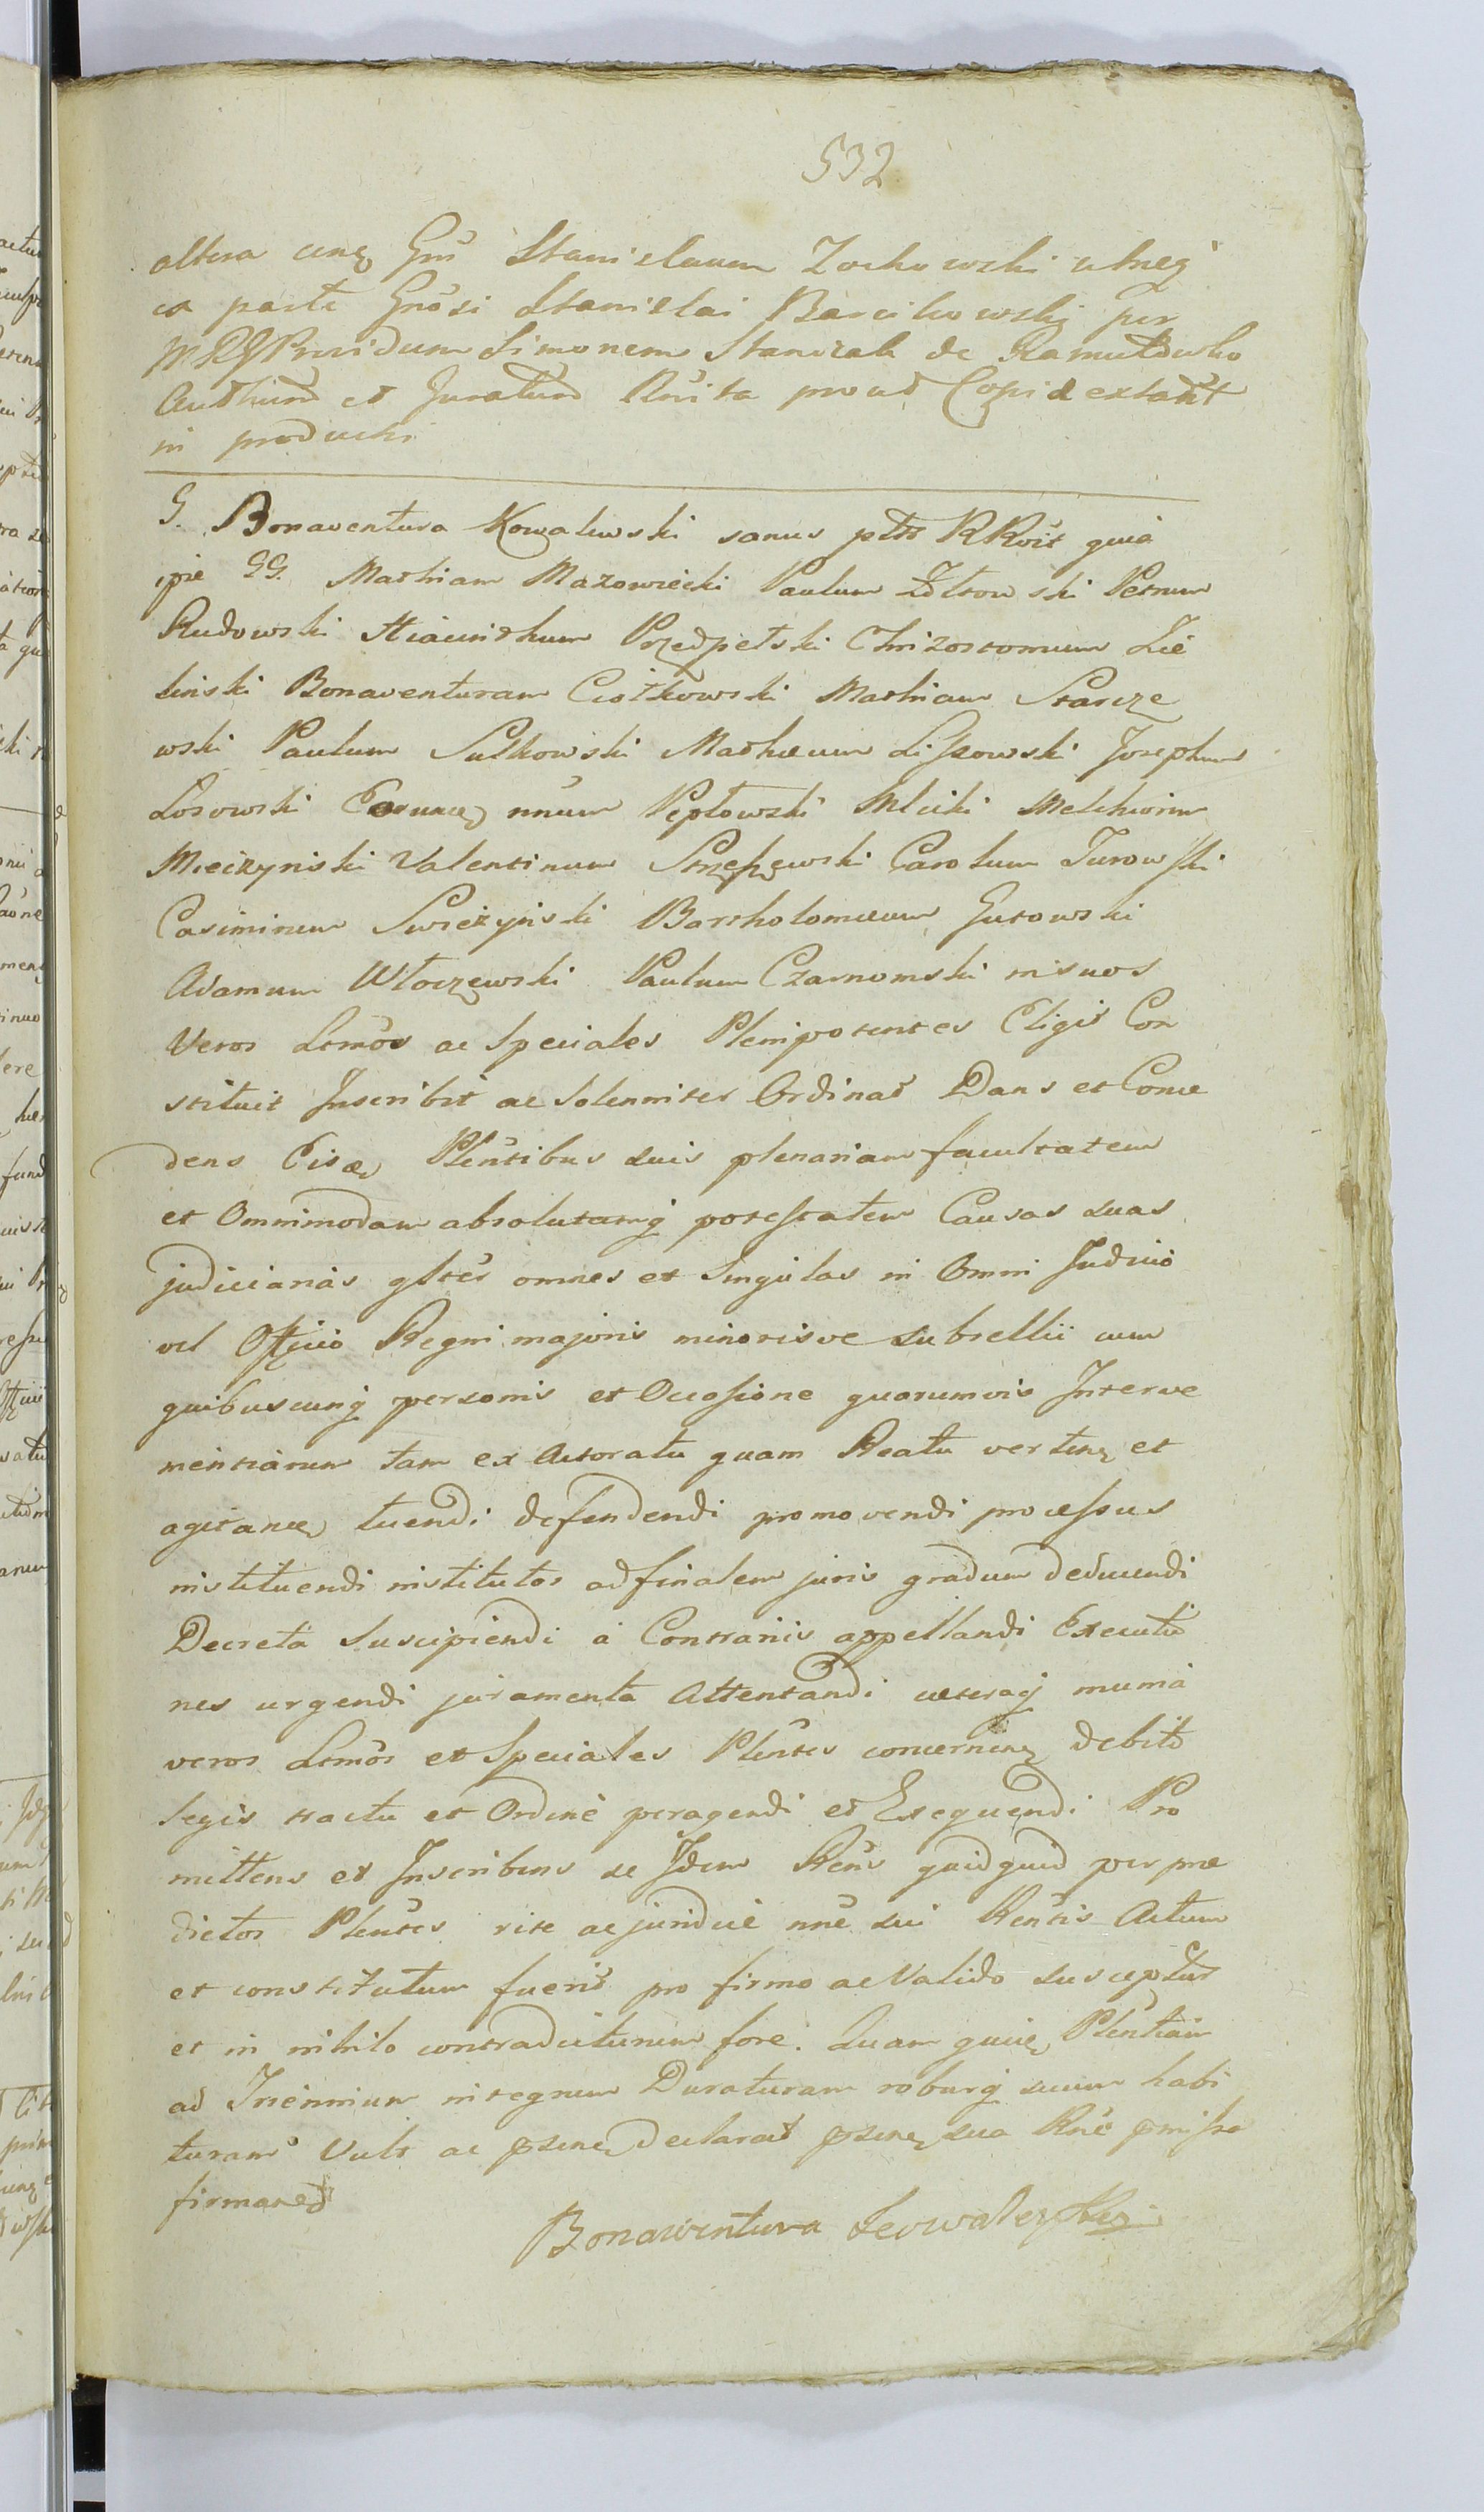 532
altera cunq Gnū Stanislaum Zochowski utneq
ex parte Gnōsi Stanislai Barcikowski per
Providum Simonem Stanczak de Ramutowko
et Juratum prout Copia extant
in producti
G. Bonaventura Kowalewski sanus ptbs RRvit quia
ipse GG. Mathiam Mazowiecki Paulum Żółtowski Petrum
Rudowski Hiacinthum Przedpełski Chrizostomum Zie
liński Bonaventuram Ciółkowski Mathiam Starcze
wski Paulum Sułkowski Mathæum Liszowski Josephum
Losowski nnum Pepłowski Mlicki Melchiorem
Mieczynski Valentinum Carolum Turowski
Casimirum Swiezynski Bartholomæum Gutowski
Adamum Włoczewski Paulum Czarnomski in suos
Veros Ltmos ac Speciales Plenipotentes Eligit Con
stituit Inscribit ac Solenniter Ordinat Dans et Conce
dens Eisd Plēntibus suis plenariam facultatem
et Omnimodam absolutamq potestatem Causas suas
judiciarias gltēr omnes et Singulas in Omni Judicio
vel Officio Regni majoris minorisve subsellii cum
quibuscunq personis et Occasione quarumvis Interve
nientiarum tam ex Actoratu quam Reatu verten et
agitan tuendi defendendi promovendi processus
instituendi institutos ad finalem juris gradum deducendi
Decreta Suscipiendi a Contrariis appellandi Executio
nes urgendi juramenta Attentandi cæteraq munia
veros Ltmos et Speciales Plēntes concernen debito
legis tractu et Ordine peragendi et Exequendi Pro
mittens et Inscribens se Idem Rēns quidquid per præ
dictos Plēntes rite ac juridice nnē sui Rēntis Actum
et constitutum fuerit pro firmo ac Valido suscepturū
et in nihilo contradicturum fore. Quam quid Plēntiam
ad Triennium integrum Duraturam roburq suum habi
turam Vult ac declarat sua Rnē pmissa
firman
Bonawentura Kowalewski